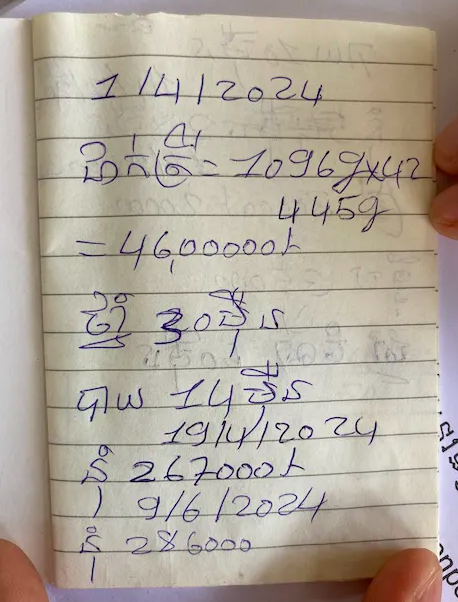 1/4/2024
= 1096g x 42
445g
= 46,00000៛
ជំ 30ម៉ឺន
បាយ 14ម៉ឺន
19/4/2024
នំ 267000៛
9/6/2024
នំ 286000